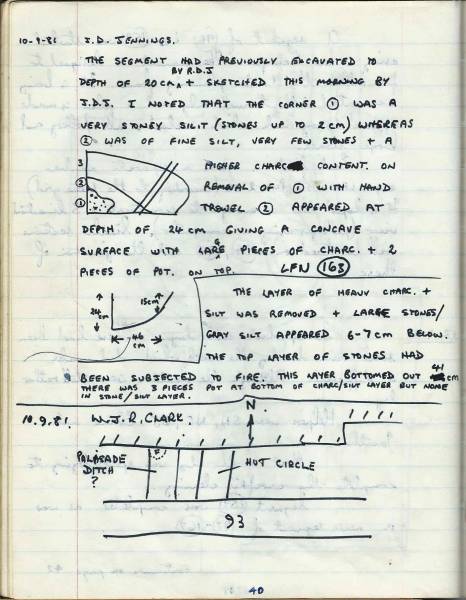 10-9-81 J.D. JENNINGS.
THE SEGMENT HAD PREVIOUSLY EXCAVATED TO
BY R.D.J
DEPTH OF 20CM + SKETCHED THIS MORNING BY
J.D.J. I NOTED THAT THE CORNER ① WAS A
VERY STONEY SILIT (STONES UP TO 2 CM) WHEREAS
② WAS OF FINE SILT, VERY FEW STONES + A
HIGHER CHARC CONTENT. ON
REMOVAL OF ① WITH HAND
TROWEL ② APPEARED AT
3
②
①
DEPTH OF, 24 CM GIVING A CONCAVE
SURFACE WITH LARGE PIECES OF CHARC. + 2
PIECES OF POT. ON TOP. LFN 163
24 CM
15cm
46 CM
THE LAYER OF HEAVY CHARC. +
SILT WAS REMOVED + LARGE STONES/
GRAY SILT APPEARED 6-7 CM BELOW.
THE TOP LAYER OF STONES HAD
BEEN SUBJECTED TO FIRE. THIS LAYER BOTTOMED OUT 41 CM
THERE WAS 3 PIECES POT AT BOTTOM OF CHARC/SILT LAYER BUT NONE
IN STONE/SILT LAYER.
10.9.81. W.J.R. CLARK.
N
PALASADE
DITCH
?
HUT CIRCLE
93
40